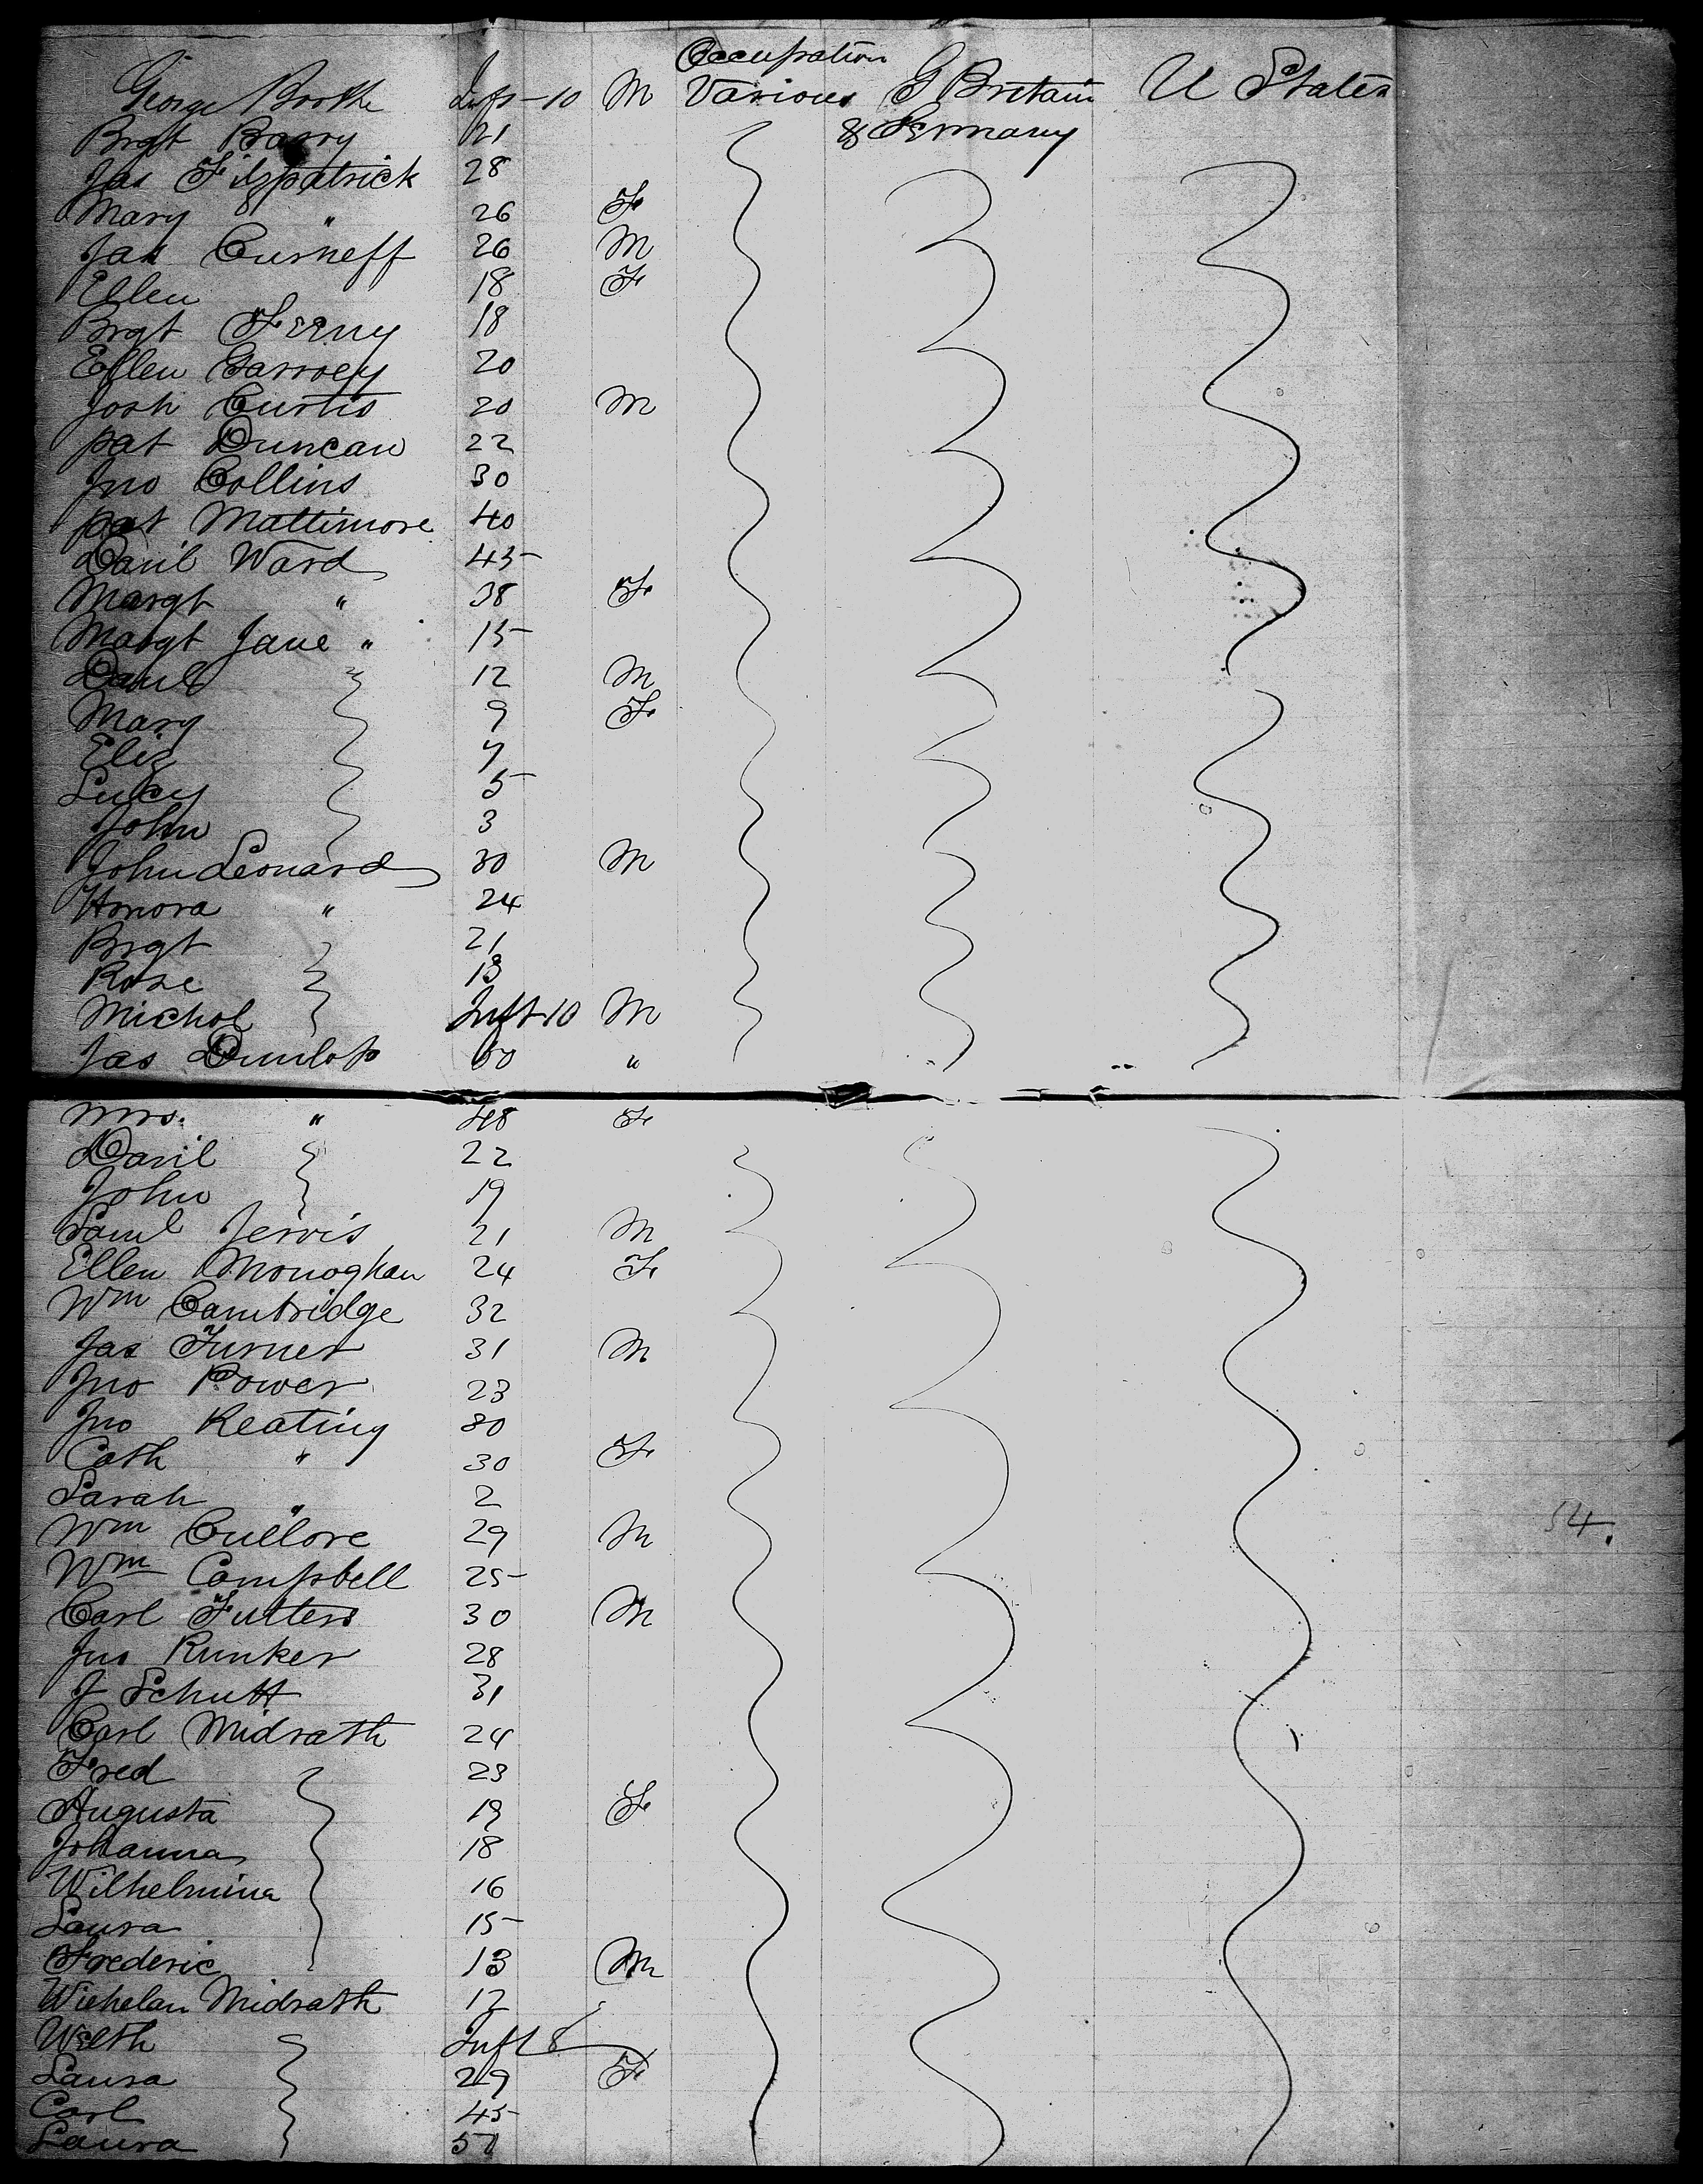 Occupation
George Booth Inft-10 M Various G Britain U States
Brgt Barry 21 & Germany
Jas Fitzpatrick 28
Mary " 26 F
Jas Curneff 26 M
Ellen 18 F
Brgt Feeny 18
Ellen Garvey 20
Josh Curtis 20 M
pat Duncan 22
Jno Collins 30
pat Mattimore 40
Danl Ward 45
Margt " 38 F
Margt Jane " 15
Danl " 12 M
Mary 9 F
Eliz 7
Lucy 5
John 3
John Leonard 30 M
Honora " 24
Brgt 21
Rose 18
Michol Inft 10 M
Jas Dunlop 60 "
Mrs. " 48 F
Danl 22
John 19
Saml Jervis 21 M
Ellen Monoghan 24 F
Wm Cambridge 32
Jas Turner 31 M
Jno Power 23
Jno Keating 30
Cath " 30 F
Sarah " 2
Wm Cullore 29 M 54.
Wm Campbell 25
Carl Futters 30 M
Jno Runker 28
J Schutt 31
Carl Midrath 24
Fred 23
Augusta 19 F
Johanna 18
Wilhelmina 16
Laura 15
Frederic 13 M
Wiehelan Midrath 12
Welth Inft 8
Laura 29 F
Carl 45
Laura 50